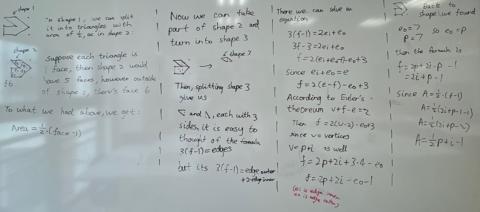 shape 1
In shape 1, we can split
it into triangles with
area of ½, as in shape 2.
shape 2
f6
Suppose each triangle is
1 face, then shape 2 would
have 5 faces, however outside
of shape 2, there's face 6
To what we had above, we get:
Area = ½ · (face - 1)
Now we can take
part of shape 2 and
turn into shape 3
shape 3
Then, splitting shape 3
give us
and , each with 3
sides, it is easy to
thought of the formula
3(f-1) = edges
but its 3(f-1) = edge outer
+ 2 edge inner
There we can solve an
equation
3(f-1) = 2ei + eo
3f - 3 = 2ei + eo
f = 2(ei+eo-f) - eo + 3
Since ei + eo = e
f = 2(e-f) - eo + 3
According to Euler's
theorem v + f - e = 2
Then f = 2(v-2) - eo + 3
since v = vertices
v = p + i as well
f = 2p + 2i + 3 - 4 - eo
f = 2p + 2i - eo - 1
(ei is edge inner
eo is edge outer)
Back to
shape 1, we found
eo = 7
p = 7 so eo = p
then the formula is
f = 2p + 2i - p - 1
= 2i + p - 1
Since A = ½ · (f-1)
A = ½ (2i + p - 1 - 1)
A = ½ (2i + p - 2)
A = ½ p + i - 1